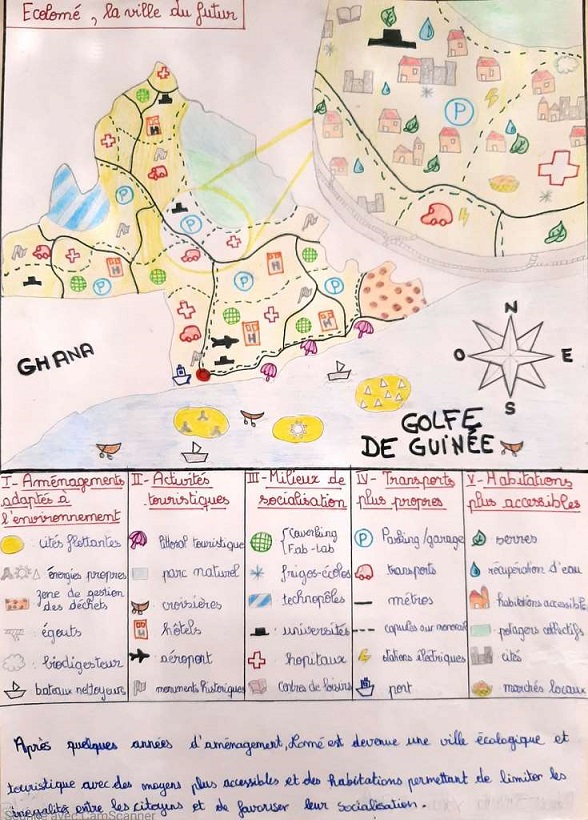 Ecolomé, la ville du futur
P
P
P
P
P
P
H
H
H
H
GHANA
N
O
E
S
GOLFE
DE GUINÉE
I - Aménagements
adaptés à
l'environnement
cités flottantes
énergies propres
zone de gestion
des déchets
égouts
biodigesteur
bateaux nettoyeurs
II - Activités
touristiques
littoral touristique
parc naturel
croisières
hôtels
aéroport
monuments historiques
III - Milieux de
socialisation
Coworking
Fab-lab
frigos-écoles
technopôles
universités
hopitaux
centres de loisirs
IV - Transports
plus propres
P
Parking/garage
transports
métros
capsules sur monorail
stations électriques
port
V - Habitations
plus accessibles
serres
récupération d'eau
habitations accessibles
potagers collectifs
cités
marchés locaux
Après quelques années d'aménagement, Lomé est devenue une ville écologique et
touristique avec des moyens plus accessibles et des habitations permettant de limiter les
inégalités entre les citoyens et de favoriser leur socialisation.
avec CamScanner